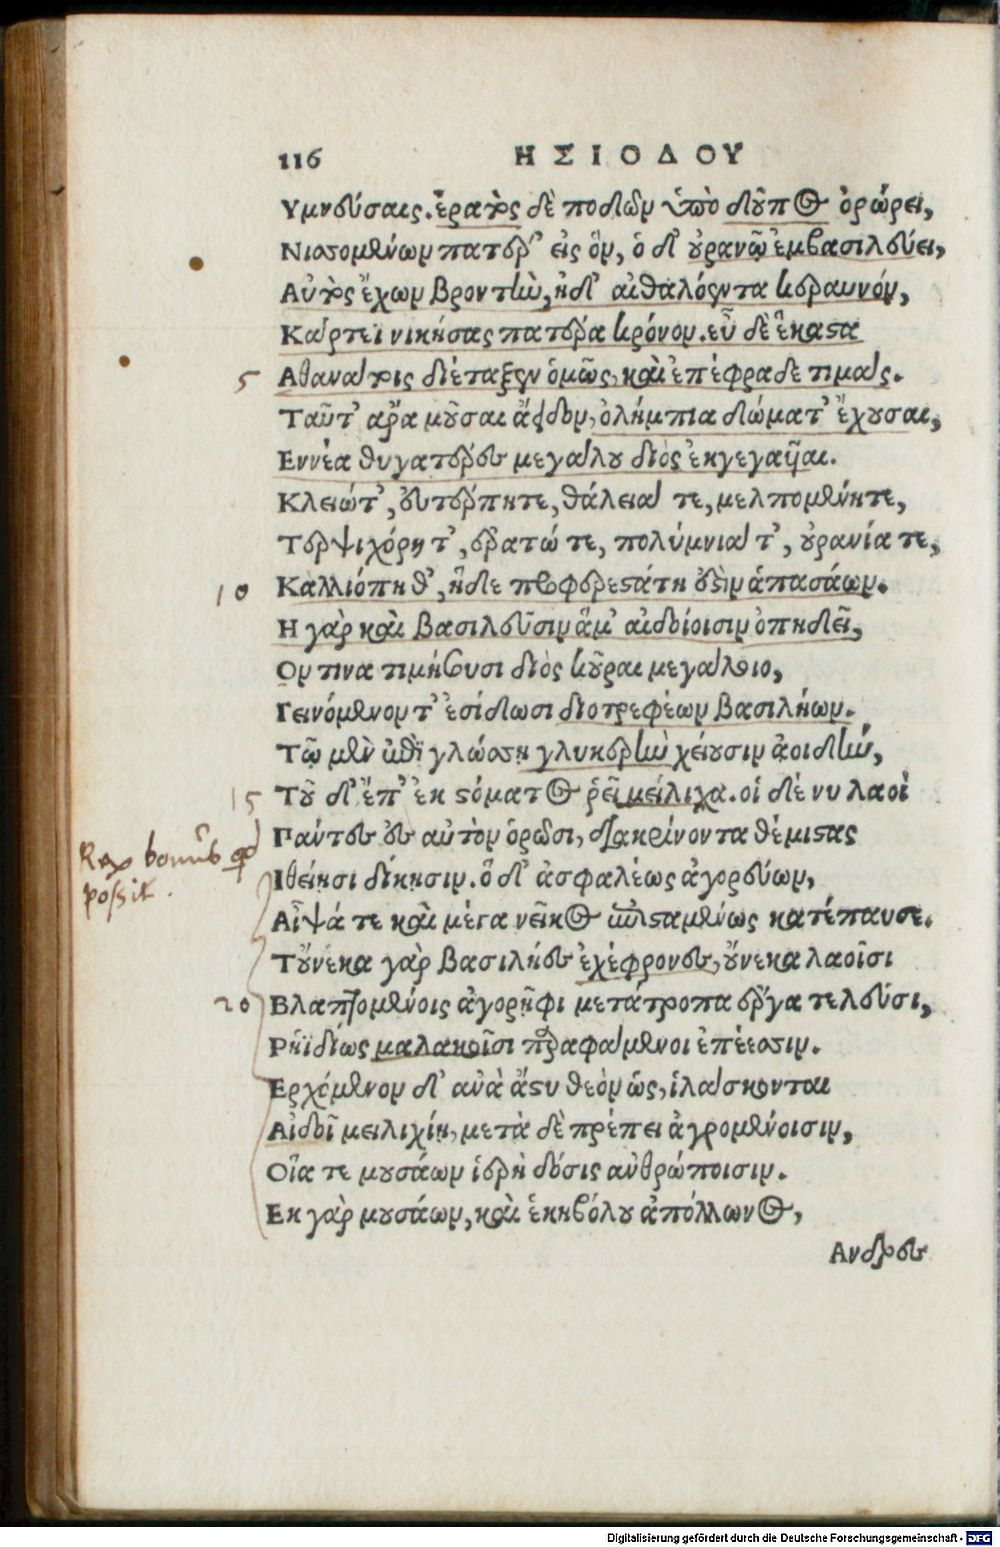 116 ΗΣΙΟΔΟΥ
Υμνεύσαις. ἐρατὸς δὲ ποδῶν ὑπὸ δοῦπος ὀρώρει,
Νισσομένων πατέρ' εἰς ὃν, ὁ δ' οὐρανῷ ἐμβασιλεύει,
Αὐτὸς ἔχων βροντὴν, ἠδ' αἰθαλόεντα κεραυνόν,
Κάρτεϊ νικήσας πατέρα κρόνον. εὖ δὲ ἕκαστα
5 Αθανάτοις διέταξεν ὁμῶς, καὶ ἐπέφραδε τιμάς.
Ταῦτ' ἄρα μοῦσαι ἄειδον, ὀλύμπια δώματ' ἔχουσαι,
Εννέα θυγατέρες μεγάλου διὸς ἐκγεγαυῖαι.
Κλειώτ', εὐτέρπητε, θάλειά τε, μελπομένητε,
Τερψιχόρη τ', ἐρατώ τε, πολύμνιά τ', οὐρανία τε,
10 Καλλιόπη θ', ἥδε προφερεστάτη ἐστὶν ἁπασάων.
Η γὰρ καὶ βασιλεῦσιν ἅμ' αἰδοίοισιν ὀπηδεῖ,
Ον τινα τιμήσουσι διὸς κοῦραι μεγάλοιο,
Γεινόμενον τ' ἐσίδωσι διοτρεφέων βασιλήων.
Τῷ μὲν ἐπὶ γλώσσῃ γλυκερὴν χείουσιν ἀοιδήν,
15 Τοῦ δ' ἔπε' ἐκ στόματος ῥεῖ μείλιχα. οἱ δέ νυ λαοὶ
Πάντες ἐς αὐτὸν ὁρῶσι, διακρίνοντα θέμιστας
Rex bonus qd
possit.
Ιθείῃσι δίκῃσιν. ὃ δ' ἀσφαλέως ἀγορεύων,
Αἶψά τε καὶ μέγα νεῖκος ἐπισταμένως κατέπαυσε.
Τοὔνεκα γὰρ βασιλῆες ἐχέφρονες, οὕνεκα λαοῖσι
20 Βλαπτομένοις ἀγορῆφι μετάτροπα ἔργα τελεῦσι,
Ρηϊδίως μαλακοῖσι παραιφάμενοι ἐπέεσσιν.
Ερχόμενον δ' ἀνὰ ἄστυ θεὸν ὣς, ἱλάσκονται
Αἰδοῖ μειλιχίῃ, μετὰ δὲ πρέπει ἀγρομένοισιν,
Οἷα τε μουσάων ἱερὴ δόσις ἀνθρώποισιν.
Εκ γὰρ μουσάων, καὶ ἑκηβόλου ἀπόλλωνος,
Ανδρες
Digitalisierung gefördert durch die Deutsche Forschungsgemeinschaft - DFG